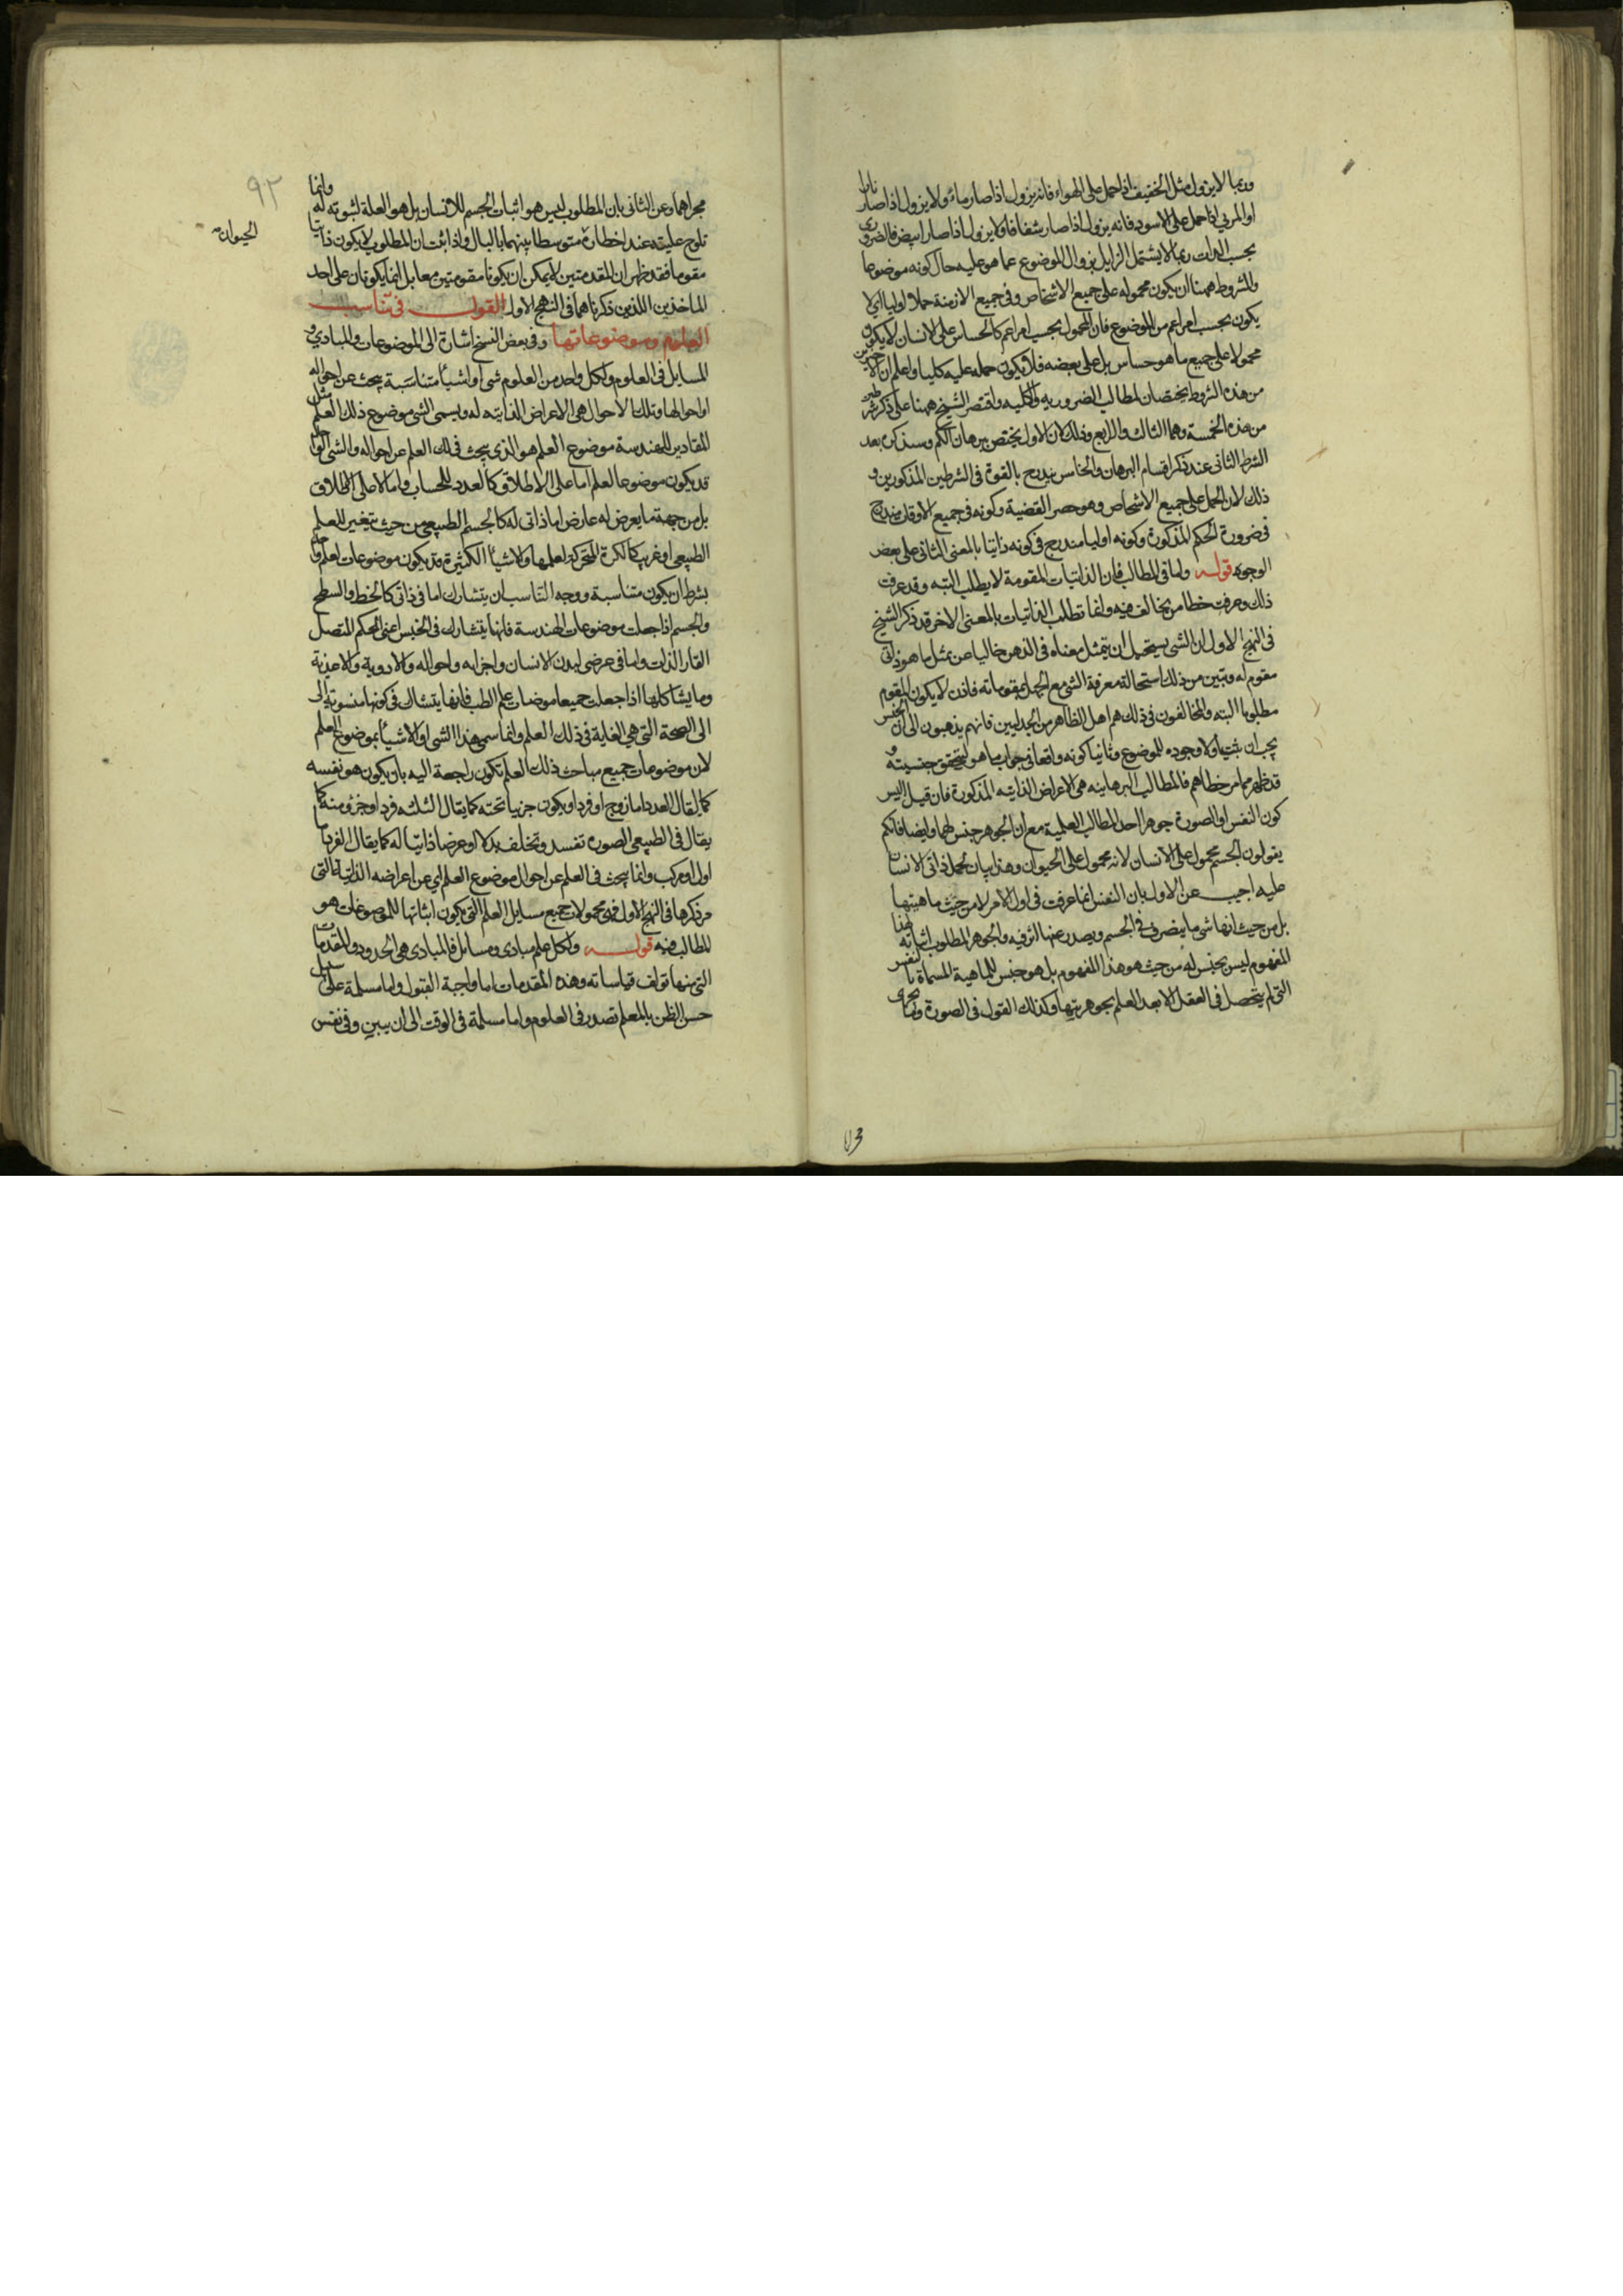 وربما لا يزول مثل الخفيف اذا حمل على الهواء فانه يزول اذا صار ماء ولا يزول اذا صار نارا
او المرئي اذا حمل على الاسود فانه يزول اذا صار شفافا ولا يزول اذا صار ابيض فالضروري
بحسب الذات ربما لا يشتمل الزايل بزوال الموضوع عما هو عليه حال كونه موضوعا
والمشروط ههنا ان يكون محموله على جميع الاشخاص وفى جميع الازمنة حملا اوليا اى لا
يكون بحسب امر اعم من الموضوع فان المحمول بحسب امر اعم كالحساس على الانسان لا يكون
محمولا على جميع ما هو حساس بل على بعضه فلا يكون حمله عليه كليا واعلم ان الاخيرين
من هذه الشروط يختصان بالمطالب الضرورية والكلية واقتصر الشيخ ههنا على ذكر شرطين
من هذه الخمسة وهما الثالث والرابع وذلك لان الاول يختص ببرهان لم وسنذكره بعد
الشرط الثانى عند ذكر اقسام البرهان والخامس يندرج بالقوة فى الشرطين المذكورين و
ذلك لان الحمل على جميع الاشخاص وهو حصر القضية وكونه فى جميع الاوقات مندرج
فى ضرورة الحكم المذكورة وكونه اوليا مندرج فى كونه ذاتيا بالمعنى الثانى على بعض
الوجوه قوله واما فى المطالب فان الذاتيات المقومة لا يطلب البته وقد عرفت
ذلك وعرفت خطا من يخالف فيه وانما تطلب الذاتيات بالمعنى الاخر قد ذكر الشيخ
فى النهج الاول ان الشى يستحيل ان يتمثل معناه فى الذهن خاليا عن تمثل ما هو ذاتى
مقوم له وتبين من ذلك استحالة معرفة الشى مع الجهل بمقوماته فاذن لا يكون المقوم
مطلوبا البته والمخالفون فى ذلك هم اهل الظاهر من الجدليين فانهم يذهبون الى ان الجنس
يجب ان يثبت اولا وجوده للموضوع وثانيا كونه واقعا فى جواب ما هو ليتحقق جنسيته و
قد ظهر مما مر خطاهم فالمطالب البرهانية هى الاعراض الذاتية المذكورة فان قيل اليس
كون النفس او الصورة جوهرا احد المطالب العلمية مع ان الجوهر جنس لهما وايضا فانكم
يقولون الجسم محمول على الانسان لانه محمول على الحيوان وهذا بيان لحمل ذاتى الانسان
عليه اجيب عن الاول بان النفس انما عرفت فى اول الامر لا من حيث ماهيتها
بل من حيث انها شى ما يتصرف فى الجسم ويصدر عنها اثر فيه والجوهر المطلوب اثباته لهذا
المفهوم ليس بجنس له من حيث هو هذا المفهوم بل هو جنس للماهية المسماة بالنفس
التى لم يتحصل فى العقل الا بعد العلم بجوهريتها وكذلك القول فى الصورة وما يجرى
٩٢
مجراهما وعن الثانى بان المطلوب ليس هو اثبات الجسم للانسان بل هو العلة لثبوته له وانما
الحيوان
تلوح عليته عند اخطاره متوسطا بينهما بالبال واذا ثبت ان المطلوب لا يكون ذاتيا
مقوما فقد ظهر ان المقدمتين لا يمكن ان يكونا مقومتين معا بل انما يكونان على احد
الماخذين اللذين ذكرناهما فى النهج الاول القول فى تناسب
العلوم وموضوعاتها وفى بعض النسخ اشارة الى الموضوعات والمبادى و
المسايل فى العلوم ولكل واحد من العلوم شى او اشياء متناسبة يبحث عن احواله
او احوالها وتلك الاحوال هى الاعراض الذاتية له ويسمى الشى موضوع ذلك العلم مثل
المقادير للهندسة موضوع العلم هو الذى يبحث فى ذلك العلم عن احواله والشى الواحد
قد يكون موضوعا لعلم اما على الاطلاق كالعدد للحساب واما لا على الاطلاق
بل من جهة ما يعرض له عارض اما ذاتى له كالجسم الطبيعى من حيث يتغير للعلم
الطبيعى او غريب كالكرة المتحركة لعلمها والاشياء الكثيرة قد يكون موضوعات لعلم واحد
بشرط ان يكون متناسبة ووجه التناسب ان يتشارك اما فى ذاتى كالخط والسطح
والجسم اذا جعلت موضوعات الهندسة فانها يتشارك فى الجنس اعنى الكم المتصل
القار الذات واما فى عرضى كبدن الانسان واجزايه واحواله والادوية والاغذية
وما يشاكلها اذا جعلت جميعا موضوعات علم الطب فانها يتشارك فى كونها منسوبة الى
الى الصحة التى هى الغاية فى ذلك العلم وانما سمى هذا الشى او الاشياء بموضوع العلم
لان موضوعات جميع مباحث ذلك العلم تكون راجعة اليه بان يكون هو نفسه
كما يقال العدد اما زوج او فرد او يكون جزيا تحته كما يقال الثلثه فرد او جزؤ منه كما
يقال فى الطبيعى الصورة تفسد وتخلف بدلا او عرضا ذاتيا له كما يقال الفرد اما
اول او مركب وانما يبحث فى العلم عن احوال موضوع العلم اى عن اعراضه الذاتية التى
مر ذكرها فى النهج الاول فهى محمولات جميع مسايل العلم التى يكون اثباتها للموضوعات هو
المطالب فيه قوله ولكل علم مبادى ومسائل فالمبادى هى الحدود والمقدمات
التى منها تولف قياساته وهذه المقدمات اما واجبة القبول واما مسلمة على سبيل
حسن الظن بالمعلم تصدر فى العلوم واما مسلمة فى الوقت الى ان يبين وفى نفس